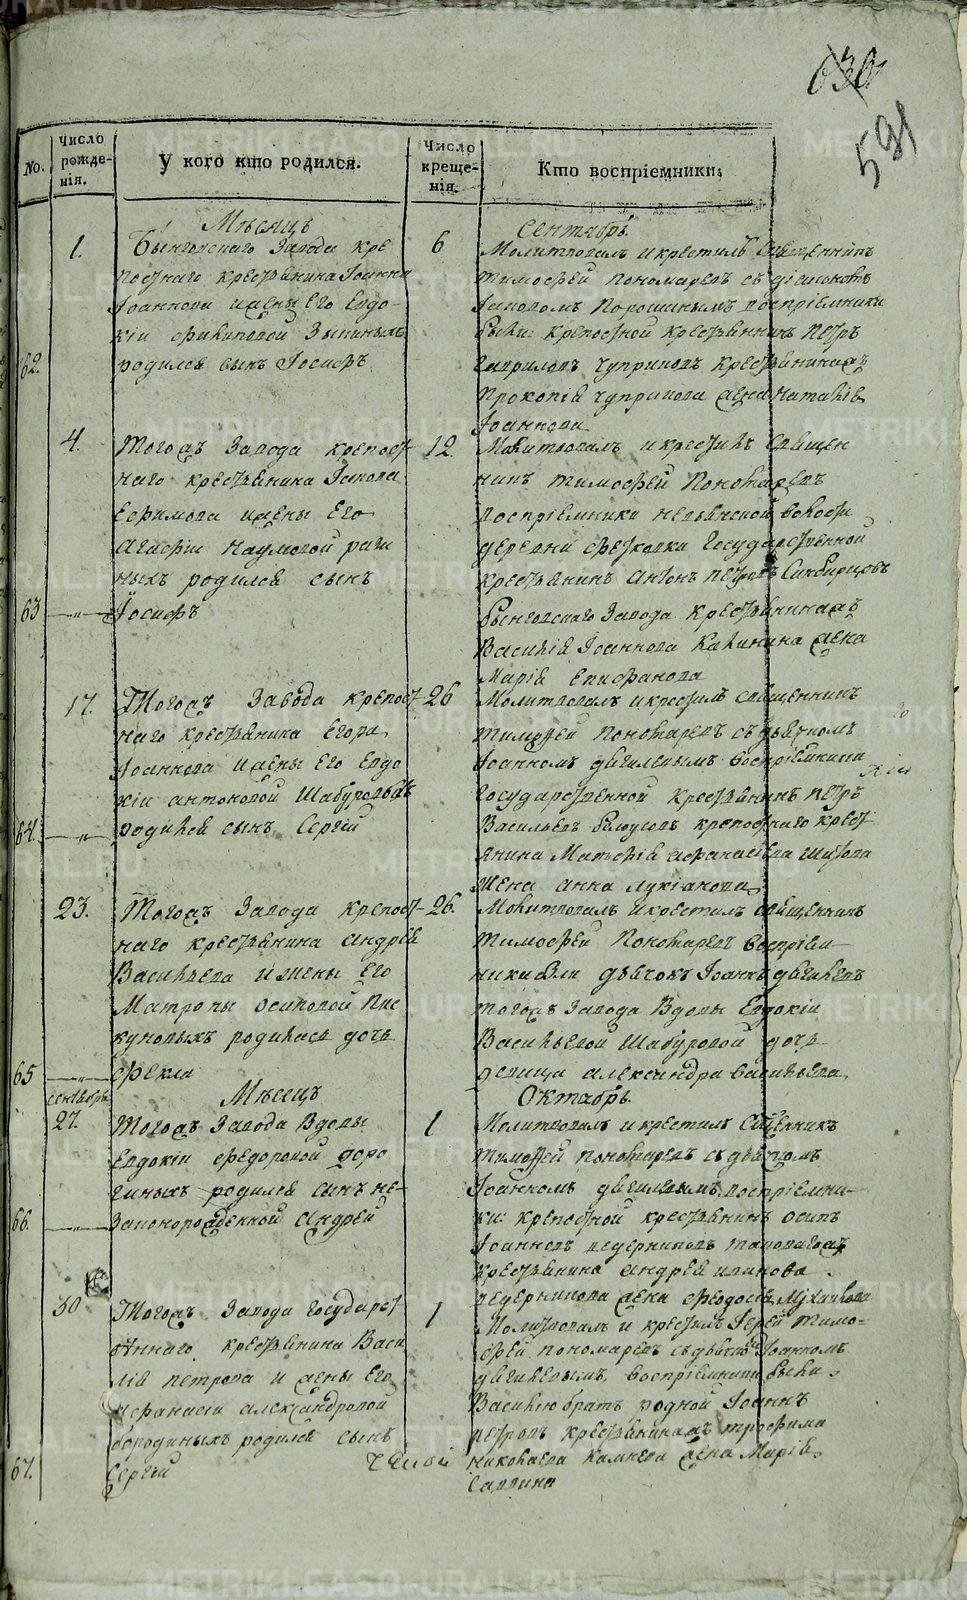 630
591
No.
Число рожде-
нія.
У кого кто родился.
Число креще-
нія.
Кто воспріемники;
Мѣсяцъ
Сентябрь.
62.
1.
Бынговскаго Завода кре
постнаго крестьянина Іоанна
Іоаннова и жены его Евдо-
кіи Филиповой Зыкиныхъ
родился сынъ Іосифъ
6
Молитвовалъ и крестилъ Священникъ
Тимофей Пономаревъ съ діакономъ
воспріемники
были: крепостной крестьянинъ Петръ
Гавриловъ Чуприновъ крестьянинажъ
Прокопія Чупринова жена Наталія
Іоаннова
63
4.
Тогожъ Завода крепост
наго крестьянина Іакова
Ефимова и жены его
Агафіи Наумовой
ныхъ родился сынъ
Іосифъ
12.
Молитвовалъ и крестилъ Священ
никъ Тимофей Пономаревъ
воспріемники Невьянской волости
деревни Федковки Государственной
крестьянинъ Антонъ Петровъ Симбирцовъ
Бынговскаго Завода крестьянинажъ
Василія Іоаннова Калинина жена
Марія Епифанова
64.
17.
Тогожъ Завода крепост-
наго крестьянина Егора
Іоаннова и жены его Евдо
кіи Антоновой Шабуровыхъ
родился сынъ Сергій
26
Молитвовалъ и крестилъ священникъ
Тимофей Пономаревъ съ дьячкомъ
Іоанномъ Двигилевымъ воспріемники
Государственной крестьянинъ Петръ
Васильевъ Белоусовъ крепостнаго крест
янина Матфія Афанасьева
жена Анна Лукіанова
65
23.
Тогожъ Завода крепост-
наго крестьянина Андрея
Васильева и жены его
Матроны Осиповой Пис
куновыхъ родилась дочь
Фекла
26.
Молитвовалъ и крестилъ священникъ
Тимофей Пономаревъ воспріем-
ники были дьячокъ Іоаннъ Двигилевъ
тогожъ Завода Вдовы Евдокіи
Васильевой Шабуровой дочь
девица Александра Васильева
Мѣсецъ
Октябрь.
66.
сентября
27.
Тогожъ Завода Вдовы
Евдокіи Федоровой
родился сынъ не-
законорожденной Андрей
1
Молитвовалъ и крестилъ Сщенникъ
Тимофей Пономаревъ съ дьячкомъ
Іоанномъ Двигилевымъ, воспріемни-
ки: крепостной крестьянинъ Осипъ
Іоанновъ Ведерниковъ таковагожъ
крестьянина Андрея Иванова
Ведерникова жена Феодосья Михайлова
67.
30
Тогожъ Завода Государст
веннаго крестьянина Васи
лія Петрова и жены его
Афанасіи Александровой
Бородиныхъ родился сынъ
Сергій
1
Молитвовалъ и крестилъ Іерей Тимо-
фей Пономаревъ съ дьячкомъ Іоанномъ
Двигилевымъ, воспріемники были.
Василію братъ родной Іоаннъ
Петровъ крестьянинажъ Трофима
Николаева Камнева жена Марія
Саввина